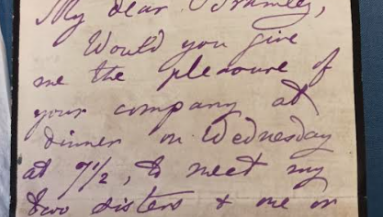 My dear Bramley,
Would you give
me the pleasure of
your company at
dinner on Wednesday
at 7½, to meet my
two sisters & one or